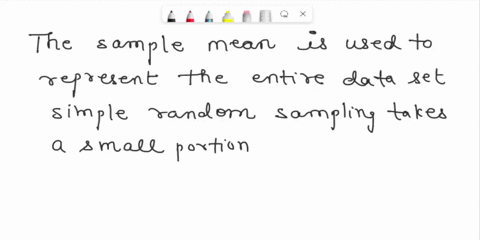 The sample mean is used to
represent the entire data set
simple random sampling takes
a small portion